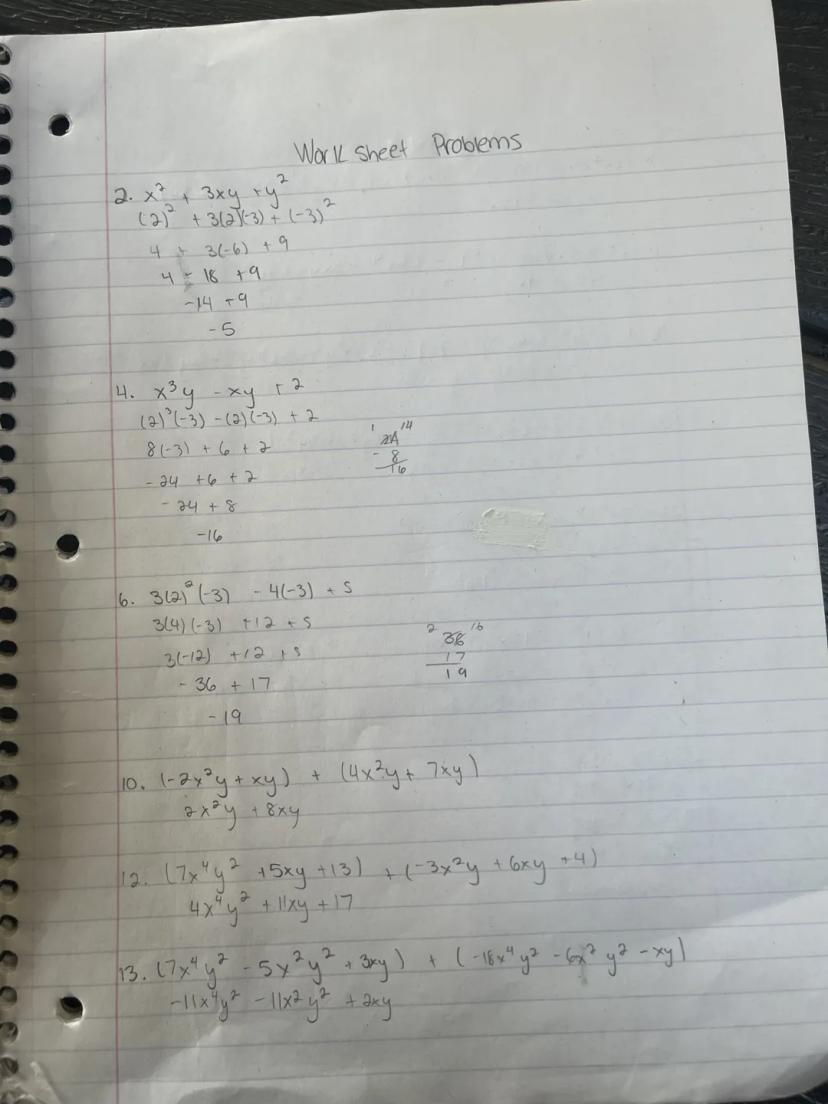 Work sheet Problems
2. x² + 3xy + y²
(2)² + 3(2)(-3) + (-3)²
4 + 3(-6) + 9
4 - 18 + 9
-14 + 9
-5
4. x³y - xy + 2
(2)³(-3) - (2)(-3) + 2
8(-3) + 6 + 2
1 24 14
- 8
16
-24 + 6 + 2
-24 + 8
-16
6. 3(2)²(-3) - 4(-3) + 5
3(4)(-3) + 12 + 5
3(-12) + 12 + 5
2 36 16
17
19
-36 + 17
-19
10. (-2x²y + xy) + (4x²y + 7xy)
2x²y + 8xy
12. (7x⁴y² + 5xy + 13) + (-3x²y + 6xy + 4)
4x⁴y² + 11xy + 17
13. (7x⁴y² - 5x²y² + 3xy) + (-18x⁴y² - 6x²y² - xy)
-11x⁴y² - 11x²y² + 2xy